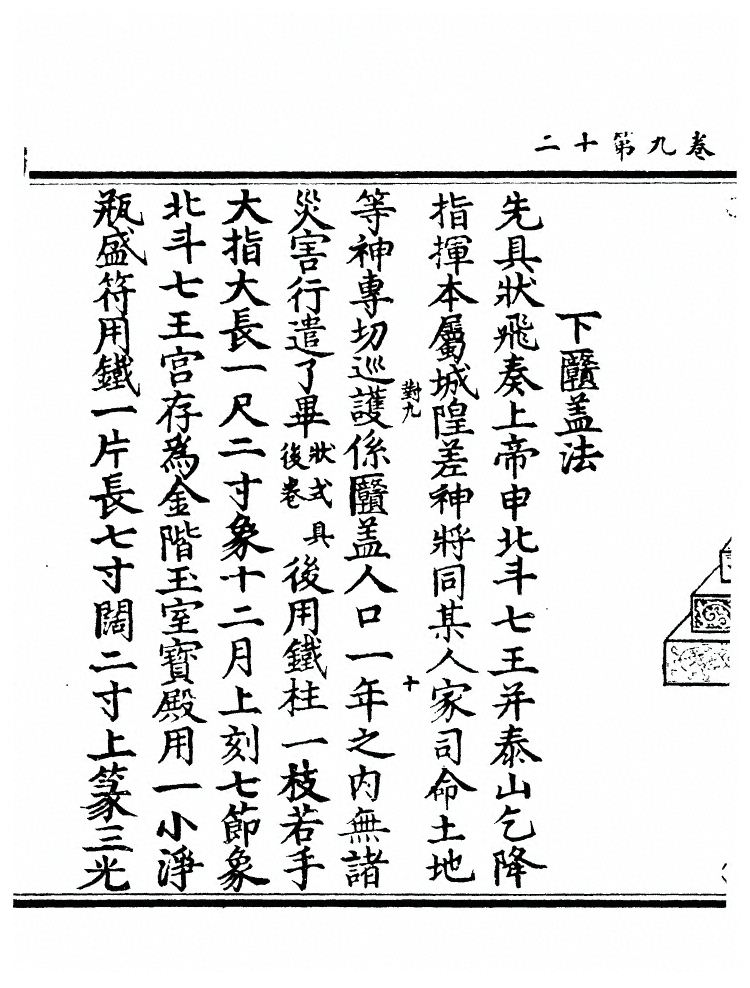 卷九第十二
下𩆜盖法
先具狀飛奏上帝申北斗七王并泰山乞降
指揮本屬城隍差神將同某人家司命土地
對九
十
等神專切巡護係盖人口一年之内無諸
災害行遣了畢狀式具後卷後用鐵柱一枝若手
大指大長一尺二寸象十二月上刻七節象
北斗七王宫存為金階玉室寶殿用一小淨
瓶盛符用鐵一片長七寸闊二寸上篆三光